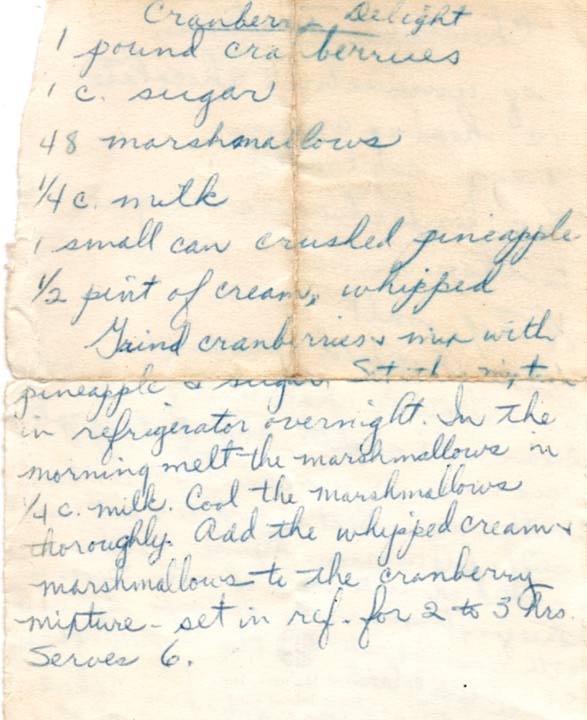 Cranberry Delight
1 pound cranberries
1 c. sugar
48 marshmallows
1/4 c. milk
1 small can crushed pineapple
1/2 pint of cream, whipped
Grind cranberries & mix with
pineapple & sugar. Set this mixture
in refrigerator overnight. In the
morning melt the marshmallows in
1/4 c. milk. Cool the marshmallows
thoroughly. Add the whipped cream &
marshmallows to the cranberry
mixture - set in ref. for 2 to 3 hrs.
Serves 6.